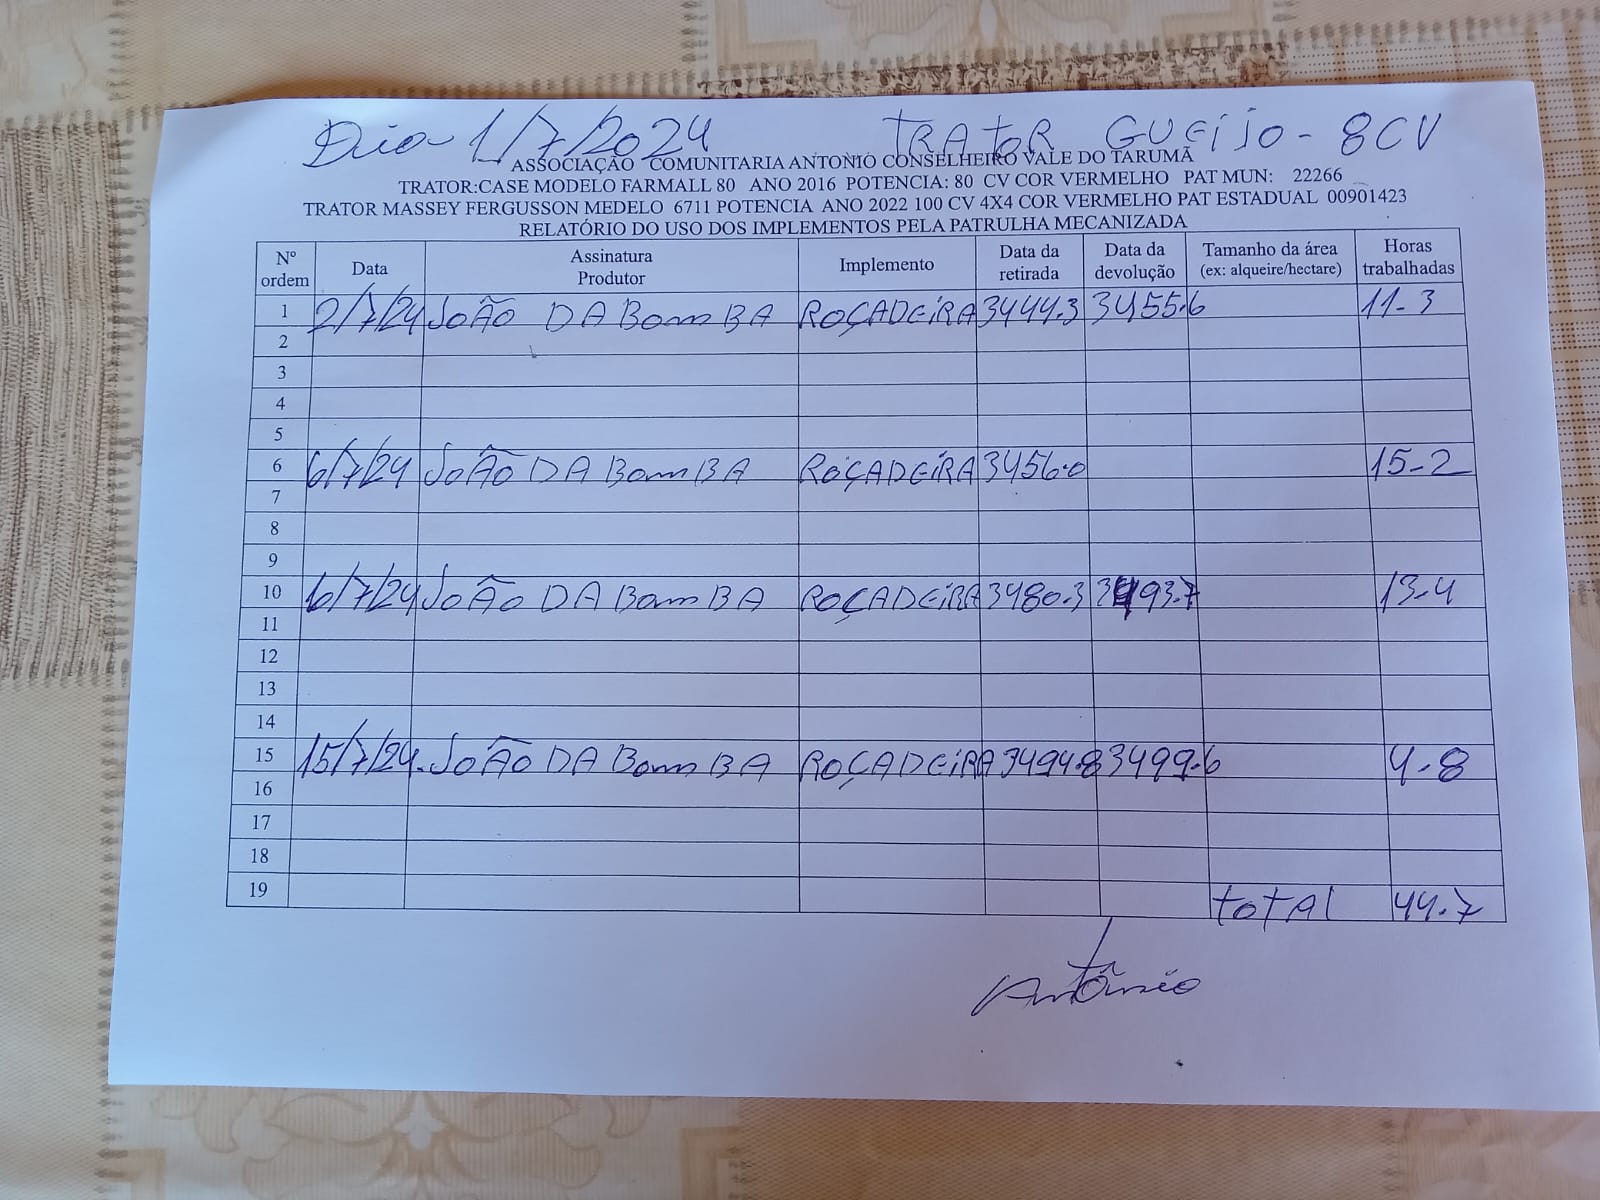 Dia- 1/7/2024 TRATOR GUEIJO - 8CV
ASSOCIAÇÃO COMUNITARIA ANTONIO CONSELHEIRO VALE DO TARUMÃ
TRATOR:CASE MODELO FARMALL 80 ANO 2016 POTENCIA: 80 CV COR VERMELHO PAT MUN: 22266
TRATOR MASSEY FERGUSSON MEDELO 6711 POTENCIA ANO 2022 100 CV 4X4 COR VERMELHO PAT ESTADUAL 00901423
RELATÓRIO DO USO DOS IMPLEMENTOS PELA PATRULHA MECANIZADA
Nº ordem Data Assinatura Produtor Implemento Data da retirada Data da devolução Tamanho da área (ex: alqueire/hectare) Horas trabalhadas
1 2/7/24 JOÃO DA BomBA ROÇADEiRA 3444.3 3455.6 11-3
2
3
4
5
6 6/7/24 JOÃO DA BomBA ROÇADEiRA 3456.0 15-2
7
8
9
10 6/7/24 JOÃO DA BomBA ROÇADEiRA 3480.3 3493.7 13-4
11
12
13
14
15 15/7/24. JOÃO DA BomBA ROÇADEiRA 3494.8 3499.6 4.8
16
17
18
19 TOTAL 44.7
Antônio